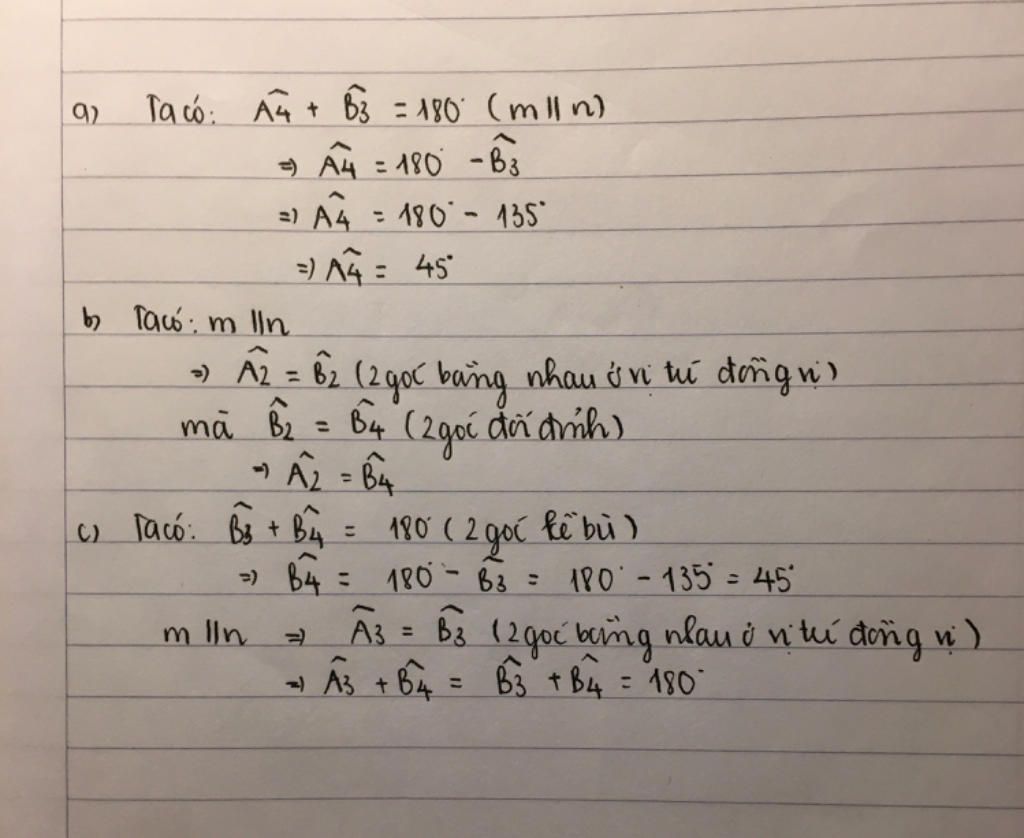 a) Ta có: Â4 + B̂3 = 180° (m // n)
=> Â4 = 180° - B̂3
=> Â4 = 180° - 135°
=> Â4 = 45°
b) Ta có: m // n
=> Â2 = B̂2 (2 góc bằng nhau ở vị trí đồng vị)
mà B̂2 = B̂4 (2 góc đối đỉnh)
=> Â2 = B̂4
c) Ta có: B̂3 + B̂4 = 180° (2 góc kề bù)
=> B̂4 = 180° - B̂3 = 180° - 135° = 45°
m // n => Â3 = B̂3 (2 góc bằng nhau ở vị trí đồng vị)
=> Â3 + B̂4 = B̂3 + B̂4 = 180°